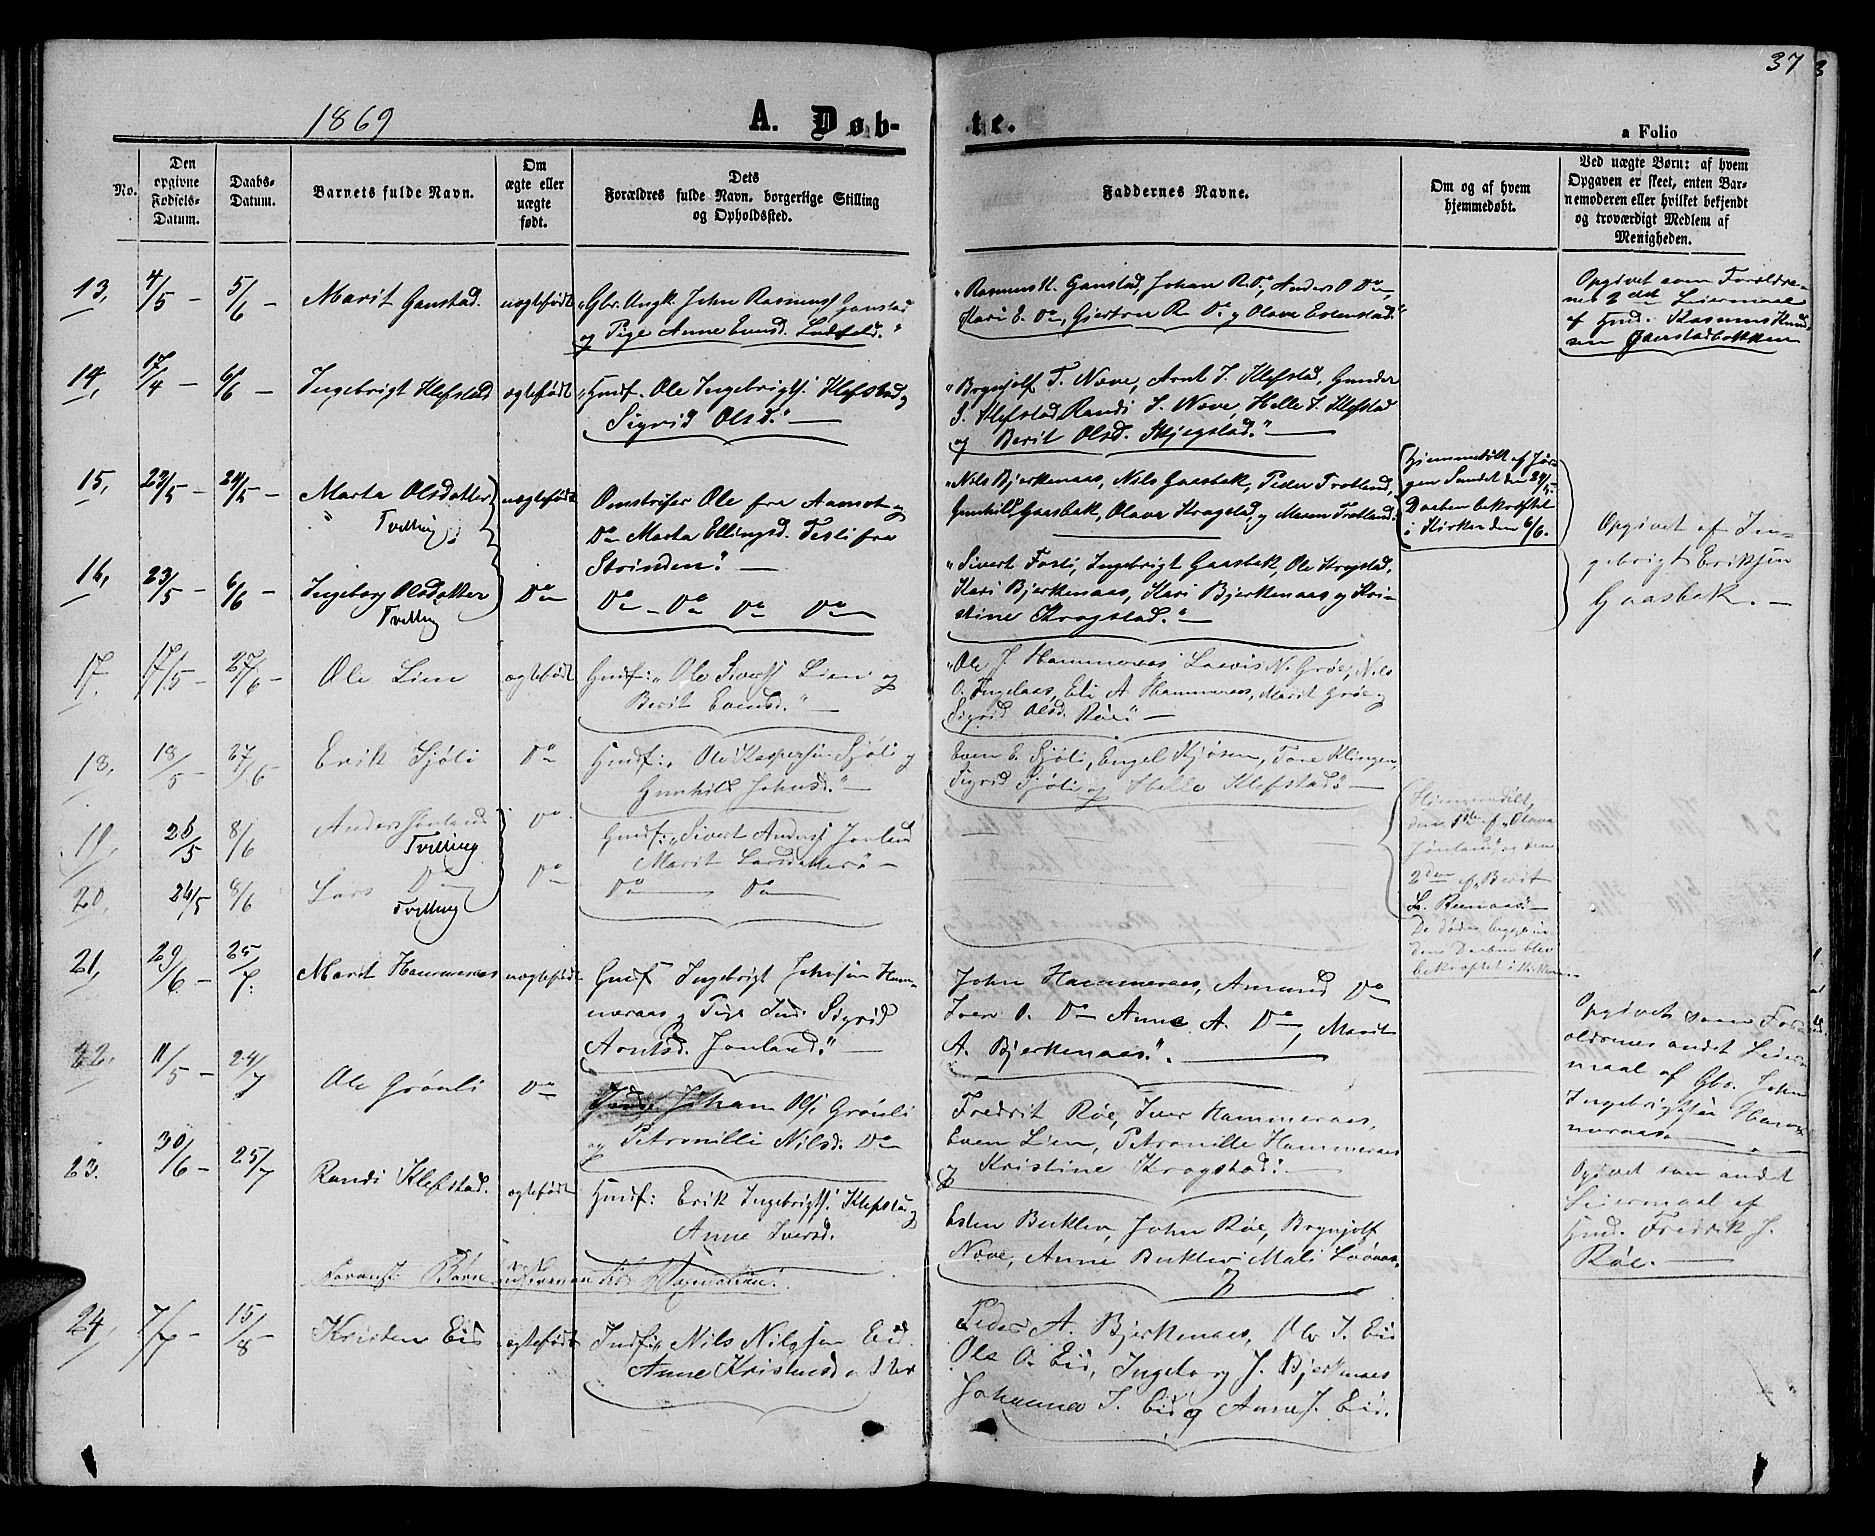 37
1869
A. Døb-
te.
a Folio
No.
Den
opgivne
Fødsels-
Datum.
Daabs-
Datum.
Barnets fulde Navn.
Om
ægte eller
uægte
født.
Dets
Forældres fulde Navn, borgerlige Stilling
og Opholdssted.
Faddernes Navne.
Om og af hvem
hjemmedøbt.
Ved uægte Børn: af hvem
Opgaven er skeet, enten Bar-
nemoderen eller hvilket bekjendt
og troværdigt Medlem af
Menigheden.
13, 4/5 - 5/6 - Marit Ganstad. uægtefødt
Gbr. Ungk. John Rasmuss Ganstad
og Pige Anne Evensd.
"Rasmus K. Ganstad, Johan R. Do, Anders O. Do,
Mari E. Do, Gjertru R. Do og Olava Estenstad."
Opgivet som Foreldre-
nes 2det Leiermaal
af Gmd. Rasmus Knud-
sen Ganstadbakken
14, 17/4 - 6/6 - Ingebrigt Klefstad ægtefødt
"Gmdf. Ole Ingebrigts. Klefstad og
Sigrid Olsd." -
"Brynjolf T. Næve, Arnt I. Klefstad, Gunder
S. Klefstad, Randi I. Næve, Helle I. Klefstad
og Berit Olsd. Skjegstad." -
15, 23/5 - 24/5 - Marta Olsdatter uægtefødt
Tvilling.
Omstreifer Ole fra Aamot og
Do Marta Ellingsd. Testi fra
Strinden." -
"Nils Bjerkenaas, Nils Gaasbak, Peder Trotland,
Gunhild Gaasbak, Olava Kragstad, og Maren Trotland.
Hjemmedøbt af Jør-
gen Sundet den 24/5.
Daaben bekræftet
i Kirken den 6/6.
Opgivet af In-
gebrigt Eriksen
Gaasbak. -
16, 23/5 - 6/6 - Ingeborg Olsdatter Do
Tvilling
Do - Do Do Do
"Sivert Fosti, Ingebrigt Gaasbak, Ole Kragstad,
Kari Bjerkenaas, Kari Bjerkenaas og Kri-
stine Kragstad." -
17. 17/5 - 27/6 - Ole Lien ægtefødt
Gmdf: "Ole Siverts Lien og
Berit Evensd." -
"Ole J. Hammeraas, Larvis N. Grøe, Nils
O. Engelaas, Eli A. Hammeraas, Marit Grøe og
Sigrid Olsd. Røe." -
18, 18/5 - 27/6 - Erik Sjøli Do
Gmdf: "Ole Kaspersen Sjøli og
Gunhild Johnsd." -
Even E. Sjøli, Engel Skjøsen, Tore Klingen,
Sigrid Sjøli og Helle Klefstad" -
19, 26/5 8/6 Anders Jonland Do
Tvilling
Gmdf: "Sivert Anders Jonland
Marit Larsdatter" -
Hjemmedøbt,
den 1ste af "Olava
Jonland", og den
2den af "Berit
L. Reenaas." -
20, 26/5 8/6 Lars Do Do
Tvilling
Do Do
De døde begge in-
den Daaben blev
bekræftet i Kirken. -
21, 29/6 - 25/7. Marit Hammeraas uægtefødt
Gmdf Ingebrigt Johnsen Ham-
meraas og Pige Ind. Sigrid
Arntsd. Jonland." -
John Hammeraas, Amund Do
Iver O. Do Anne A. Do, Marit
A. Bjerkenaas."
Opgivet som For-
ældrenes andet Leier-
maal af Gbr. John
Ingebrigtsen Ham-
meraas.
22. 11/5 - 24/7 Ole Grønli Do
Johan Ols. Grønli
og Petronilli Nilsd. Do
Fredrik Røe, Iver Hammeraas,
Even Lien, Petronille Hammeraas
og Kristine Kragstad. -
Opgivet som andet
Leiermaal af
Gmd. Fredrik J.
Røe. -
23. 30/6 - 25/7 Randi Klefstad. ægtefødt
Gmdf: Erik Ingebrigts. Klefstad og
Anne Iversd.
Esten Buklev, John Røe, Brynjolf
Næve, Anne Buklev Mali
Foranst. Børn
24, 7/7 - 15/8 Kristen Eid ægtefødt
Indf: "Nils Nilssen Eid
Anne Kristensd
Peder A. Bjerkenaas, Ole I. Eid
Ole O. Eid, Ingeborg J. Bjerkenaas
Johanna I. Eid og Anne J. Eid.